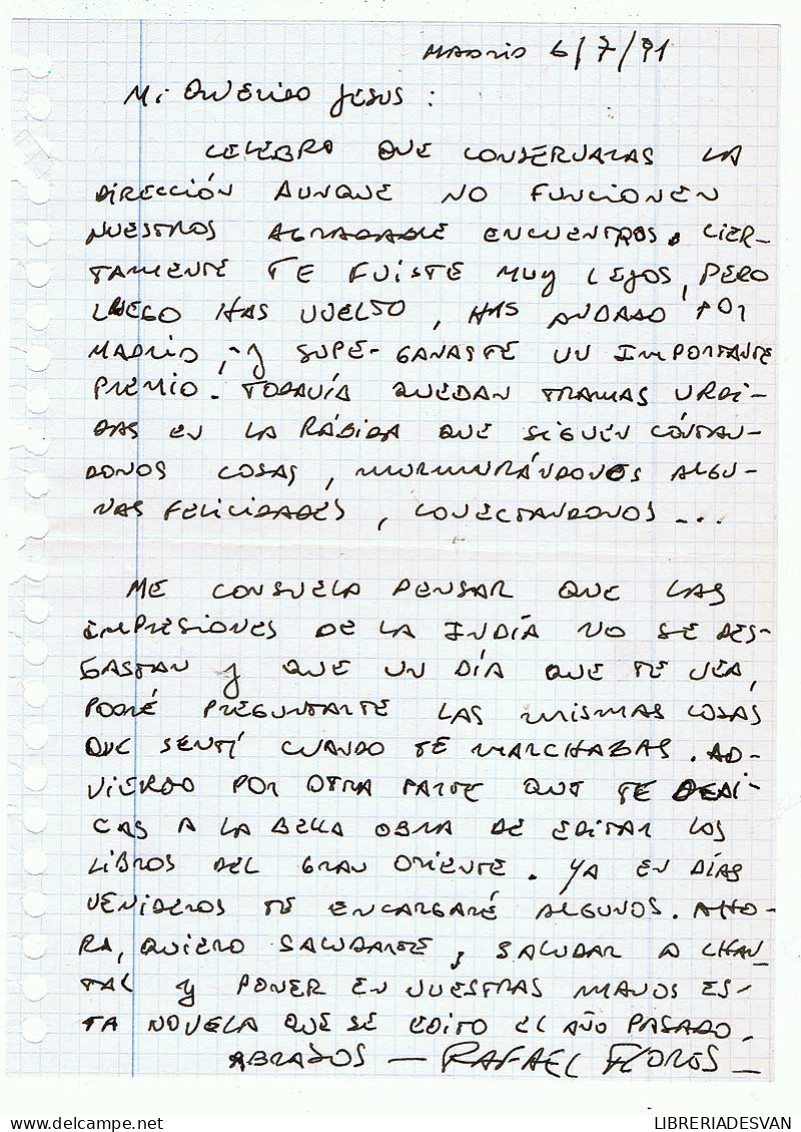 MADRID 6/7/91
Mi QUERIDO JESUS:
CELEBRO QUE CONSERVARAS LA
DIRECCIÓN AUNQUE NO FUNCIONEN
NUESTROS AGRADABLE ENCUENTROS. CIER-
TAMENTE TE FUISTE MUY LEJOS, PERO
LUEGO HAS VUELTO, HAS ANDADO POR
MADRID, Y SUPE-GANASTE UN IMPORTANTE
PREMIO. TODAVÍA QUEDAN TRAMAS URDI-
DAS EN LA RÁBIDA QUE SIGUEN CONTÁN-
DONOS COSAS, MURMURÁNDONOS ALGU-
NAS FELICIDADES, CONECTANDONOS...
ME CONSUELA PENSAR QUE LAS
IMPRESIONES DE LA INDÍA NO SE DES-
GASTAN Y QUE UN DÍA QUE TE VEA,
PODRÉ PREGUNTARTE LAS MISMAS COSAS
QUE SENTÍ CUANDO TE MARCHABAS. AD-
VIERDO POR OTRA PARTE QUE TE DEDI-
CAS A LA BELLA OBRA DE EDITAR LOS
LIBROS DEL GRAN ORIENTE. YA EN DÍAS
VENIDEROS TE ENCARGARÉ ALGUNOS. AHO-
RA, QUIERO SALUDARTE, SALUDAR A CHAN-
TAL Y PONER EN VUESTRAS MANOS ES-
TA NOVELA QUE SE EDITO EL AÑO PASADO.
ABRAZOS — RAFAEL FLORES —
delcampe.net
LIBRERIADESVAN